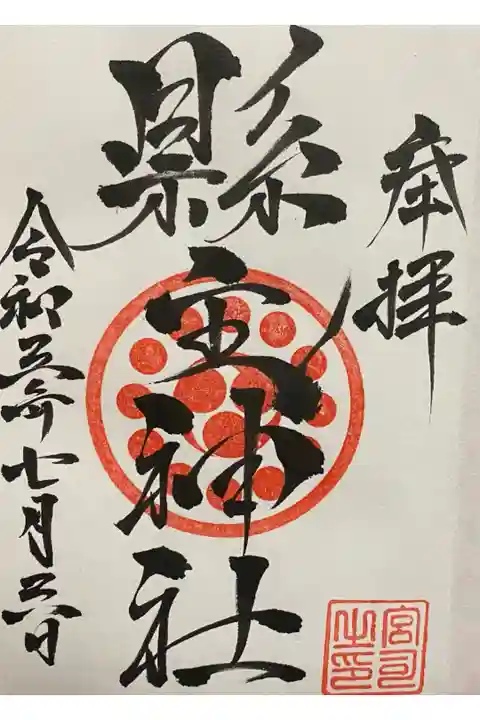 奉拝
縣宝神社
令和五年七月日
宮司之印